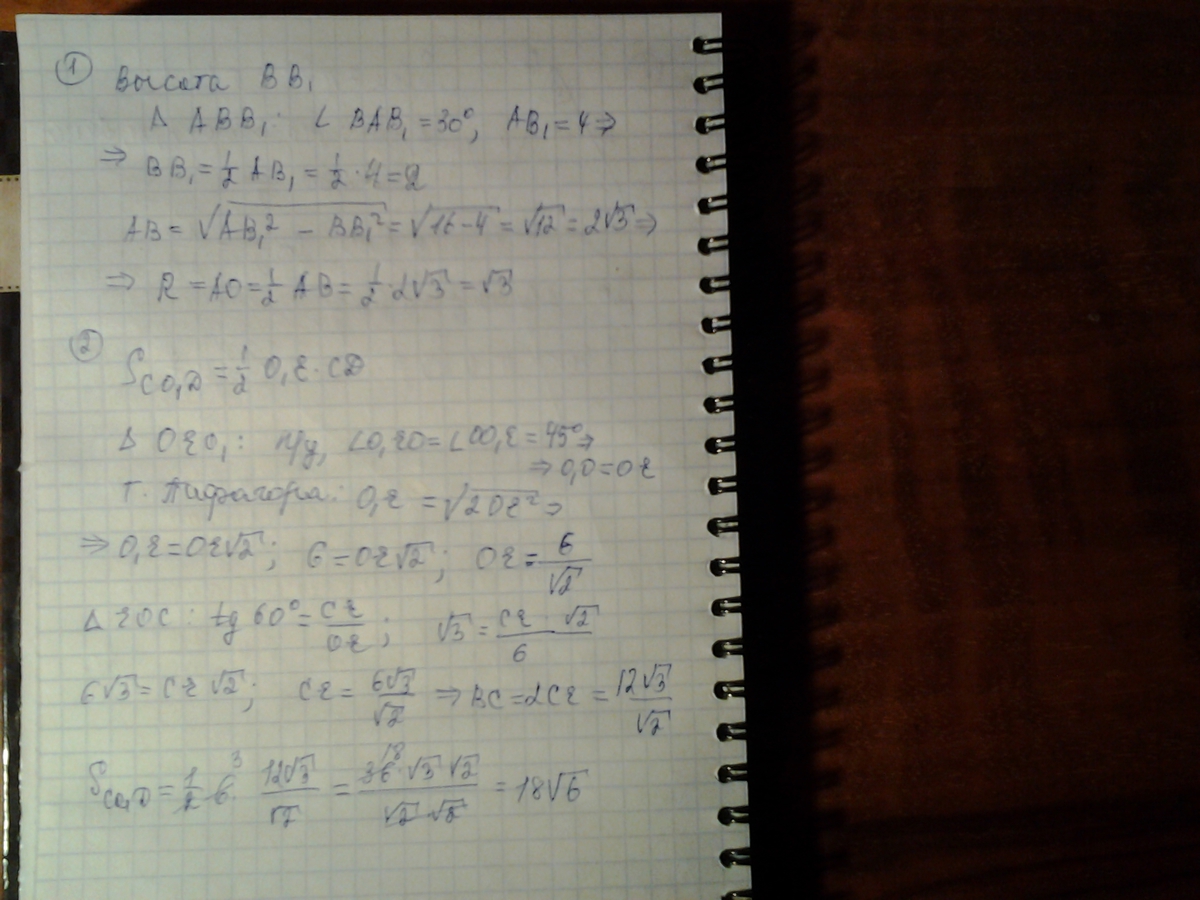 ① Высота BB₁
Δ ABB₁: ∠ BAB₁ = 30°, AB₁ = 4 ⇒
⇒ BB₁ = 1/2 AB₁ = 1/2 · 4 = 2
AB = √(AB₁² − BB₁²) = √(16−4) = √12 = 2√3 ⇒
⇒ R = AO = 1/2 AB = 1/2 · 2√3 = √3
② S_CO₁D = 1/2 O₁E · CD
Δ OEO₁: п/у, ∠O₁EO = ∠OO₁E = 45° ⇒
⇒ O₁O = OE
т. Пифагора: O₁E = √(2OE²) ⇒
⇒ O₁E = OE√2; 6 = OE√2; OE = 6/√2
Δ EOC: tg 60° = CE/OE; √3 = CE · √2/6
6√3 = CE √2; CE = 6√3/√2 ⇒ BC = 2CE = 12√3/√2
S_CO₁D = 1/2 · 6 ³ · 12√3/√2 = 36 ¹⁸ · √3 √2/√2 · √2 = 18√6